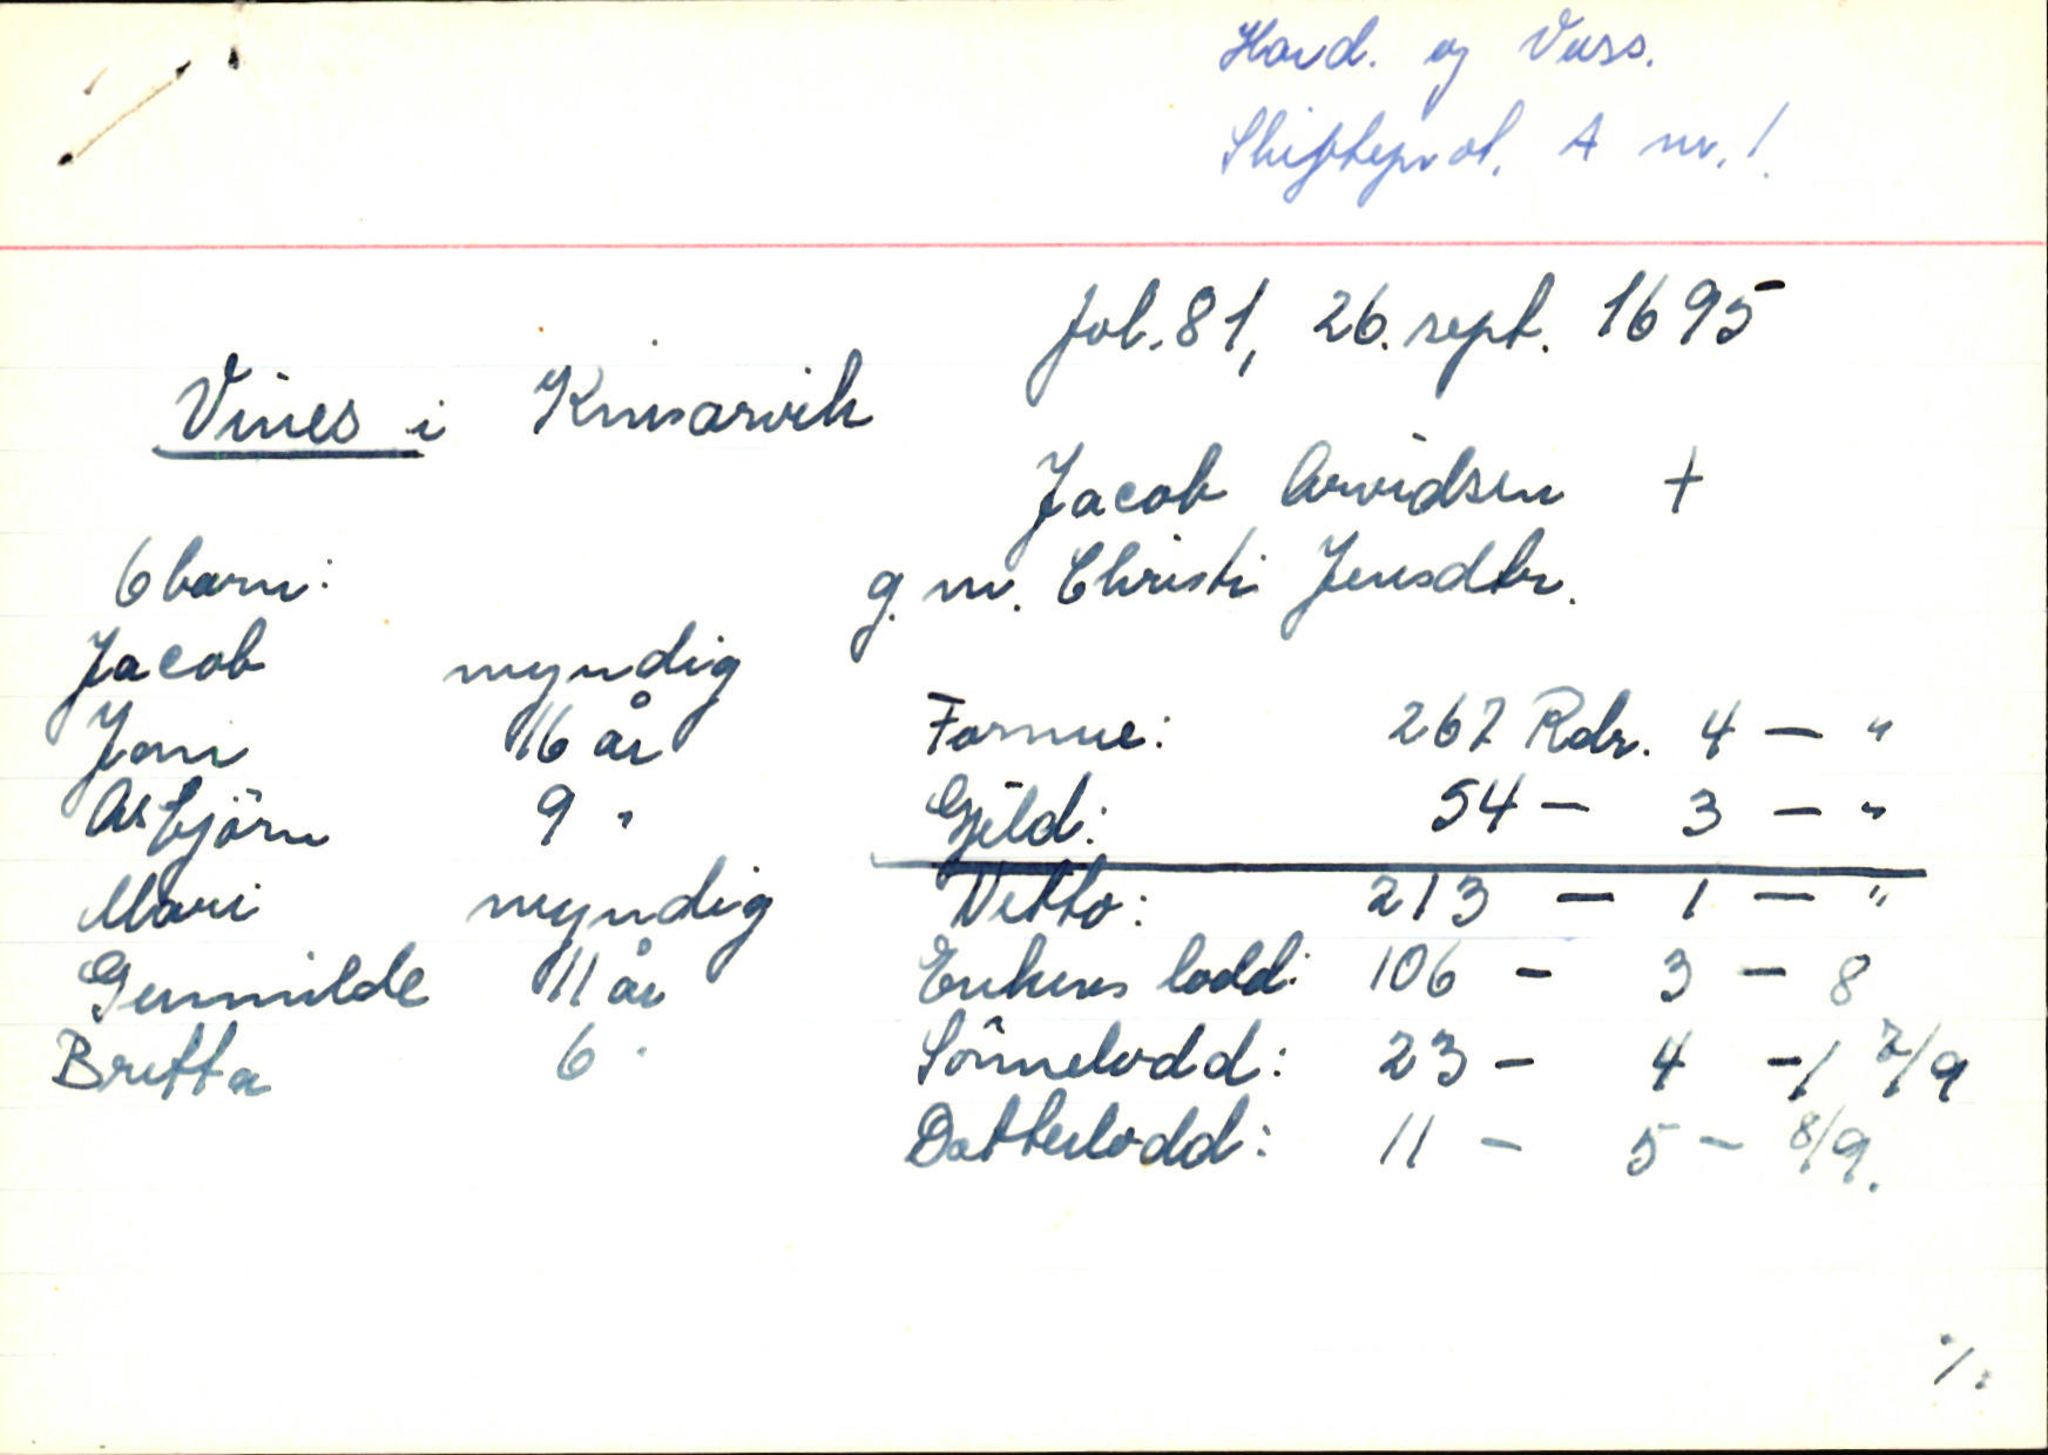 Hard. og Voss.
Skifteprot. A nr. 1.
fol. 81, 26. sept. 1695
Vines i Kinsarvik
Jacob Arvidsen +
g. m. Christi Jensdtr.
6 barn:
Jacob myndig
Joni 16 år
Asbjörn 9 "
Mari myndig
Gunnilde 11 år
Britta 6 "
Formue: 267 Rdr. 4 — "
Gjeld: 54 — 3 — "
Netto: 213 — 1 — "
Enkens lodd: 106 — 3 — 8
Sönnelodd: 23 — 4 — 1 7/9
Datterlodd: 11 — 5 — 8/9.
·/.